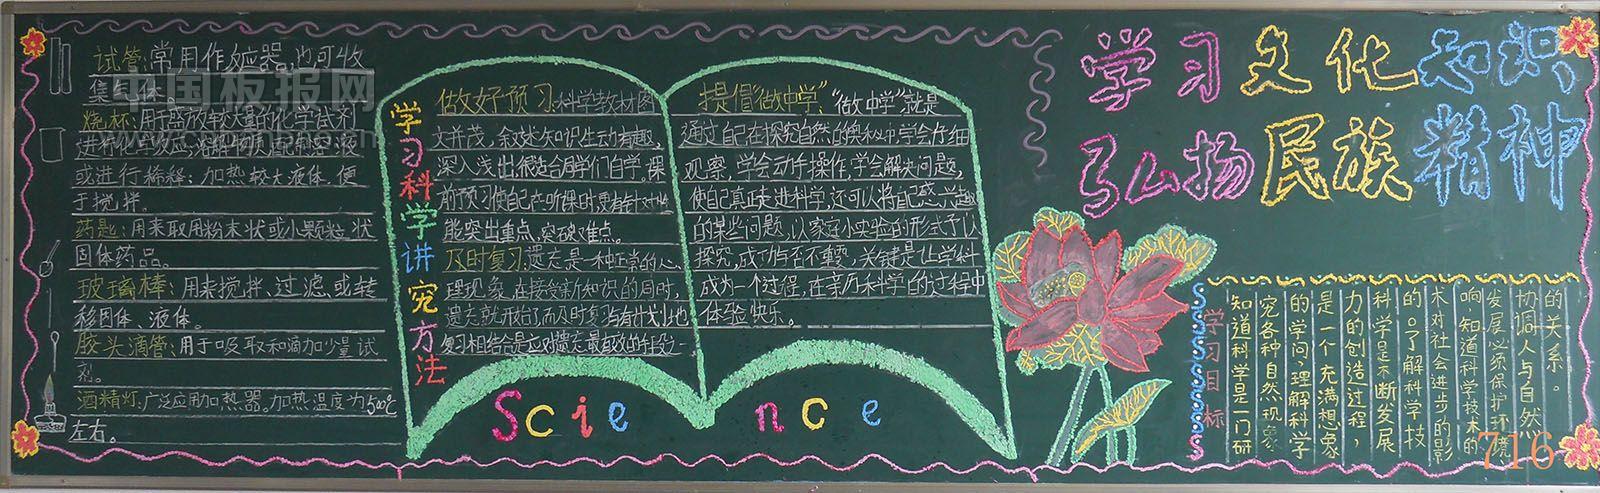 试管:常用作反应器,也可收
集气体。
烧杯:用于盛放较大量的化学试剂
进行化学反应,溶解物质配制溶液
或进行稀释;加热较大液体,便
于搅拌。
药匙:用来取用粉末状或小颗粒状
固体药品。
玻璃棒:用来搅拌、过滤、或转
移固体、液体。
胶头滴管:用于吸取和滴加少量试
剂。
酒精灯:广泛应用加热器。加热温度为500℃
左右。
中国板报网
学习科学讲究方法
做好预习:科学教材图
文并茂,叙述知识生动有趣,
深入浅出,很适合同学们自学。课
前预习使自己在听课时更有针对性
能突出重点、突破难点。
及时复习:遗忘是一种正常的心
理现象,在接受新知识的同时,
遗忘就开始了而及时复习与有计划地
复习相结合是应对遗忘最有效的手段
提倡“做中学”:“做中学”就是
通过自己在探究自然的奥秘中学会仔细
观察,学会动手操作,学会解决问题,
使自己真正走进科学,还可以将自己感兴趣
的某些问题,以家庭小实验的形式予以
探究,成功与否不重要,关键是让学科
成为一个过程,在亲历科学的过程中
体验快乐。
Science
学习文化知识
弘扬民族精神
学习目标
知道科学是一门研
究各种自然现象
的学问,理解科学
是一个充满想象
力的创造过程,
科学是不断发展
的。了解科学技
术对社会进步的影
响,知道科学技术的
发展必须保护环境,
协调人与自然
的关系。
716